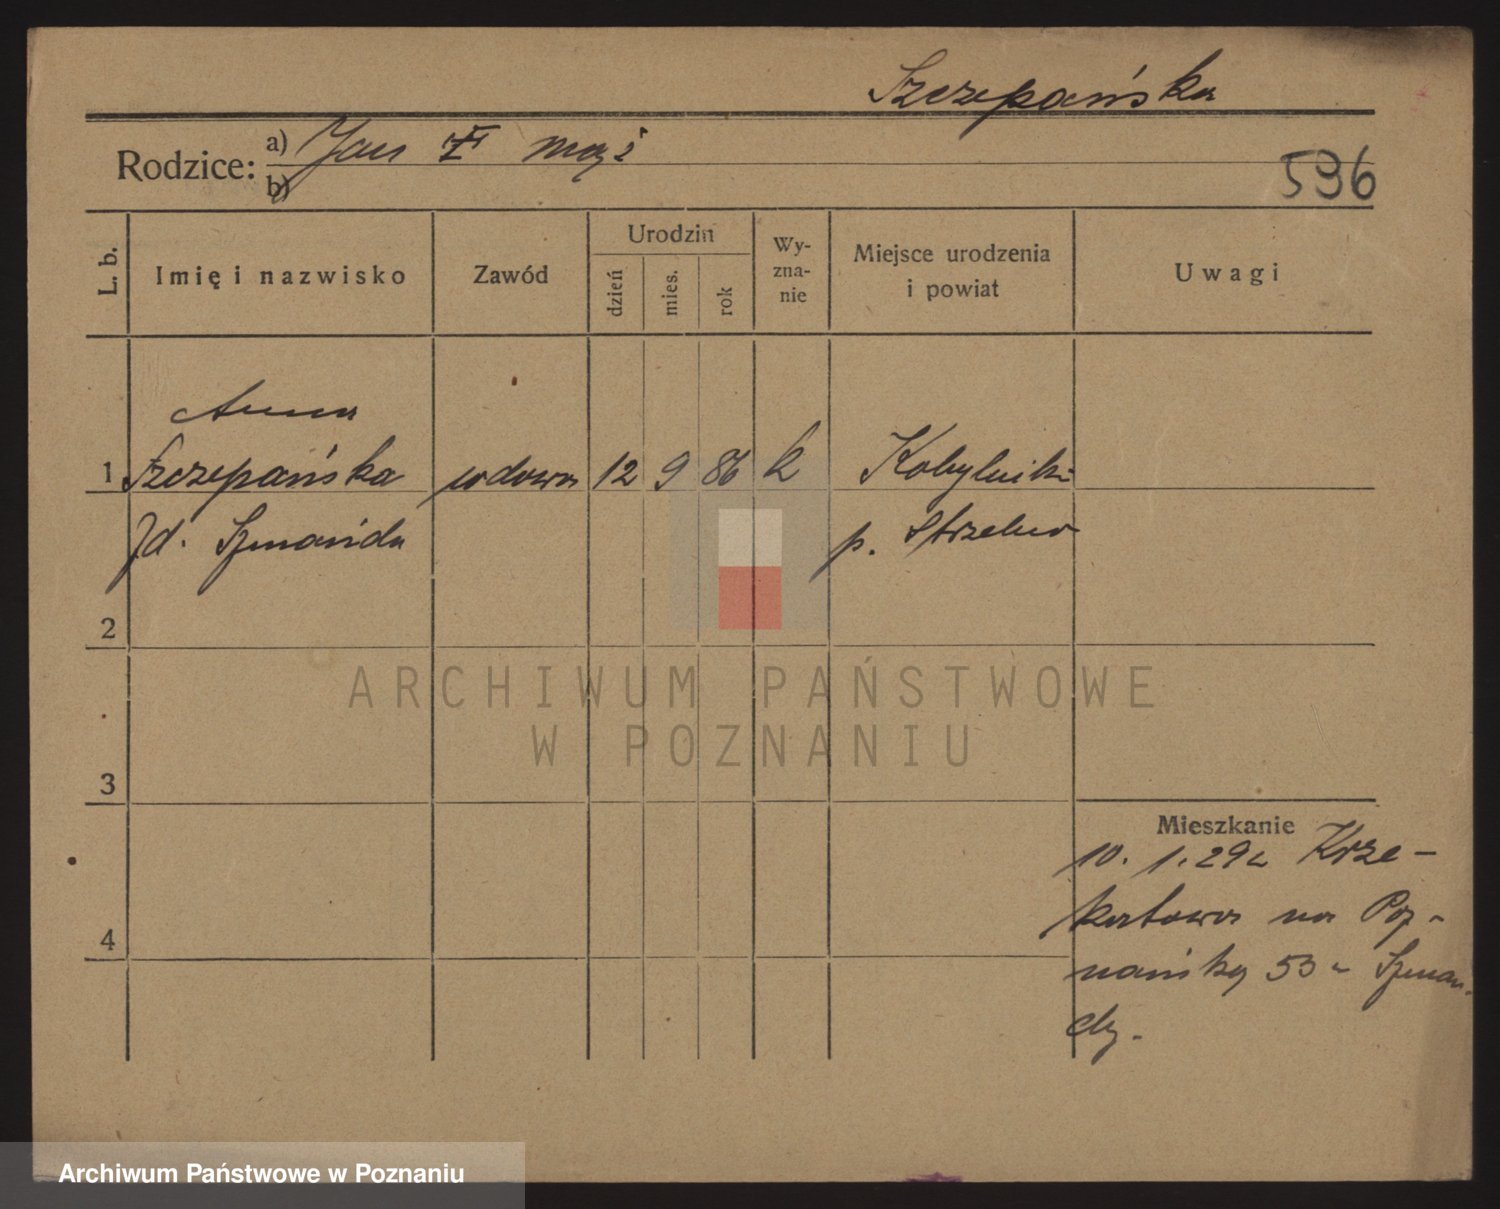 Szczepańska
Rodzice: a) Jan mąż
b)
596
L. b.
Imię i nazwisko
Zawód
Urodzin
dzień
mies.
rok
Wy-
zna-
nie
Miejsce urodzenia
i powiat
Uwagi
Anna
1 Szczepańska wdowa 12 9 86 k Kobylniki
p. Strzelno
2
ARCHIWUM PAŃSTWOWE
W POZNANIU
3
Mieszkanie
10. 1. 29
na Poz-
4
nańską 53
Archiwum Państwowe w Poznaniu